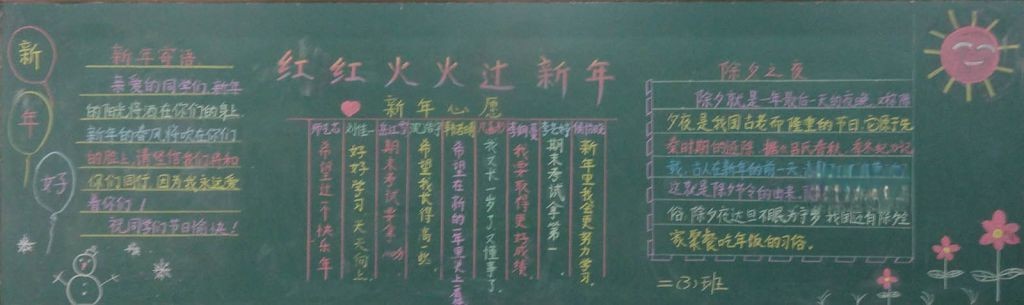 新
年
好
新年寄语
亲爱的同学们,新年
的阳光将洒在你们的身上,
新年的春风将吹在你们
的脸上,请坚信我们将和
你们同行,因为我永远爱
着你们!
祝同学们节日愉快!
红红火火过新年
新年心愿
希望过一个快乐年
好好学习天天向上
期末考试要拿
希望我长得高一些
希望在新的一年里更上一
我又大一岁了又懂事了
我要取得更好成绩
期末考试拿第一
新年里我会更努力学习.
除夕之夜
除夕就是一年最后一天的夜晚.
夕夜.是我国古老而隆重的节日.它源于先
秦时期的
古人在新年的前一天
这就是除夕节令的由来.
俗.除夕夜达旦不眠为守岁.我国还有除夕全
家聚餐吃年饭的习俗.
二(3)班